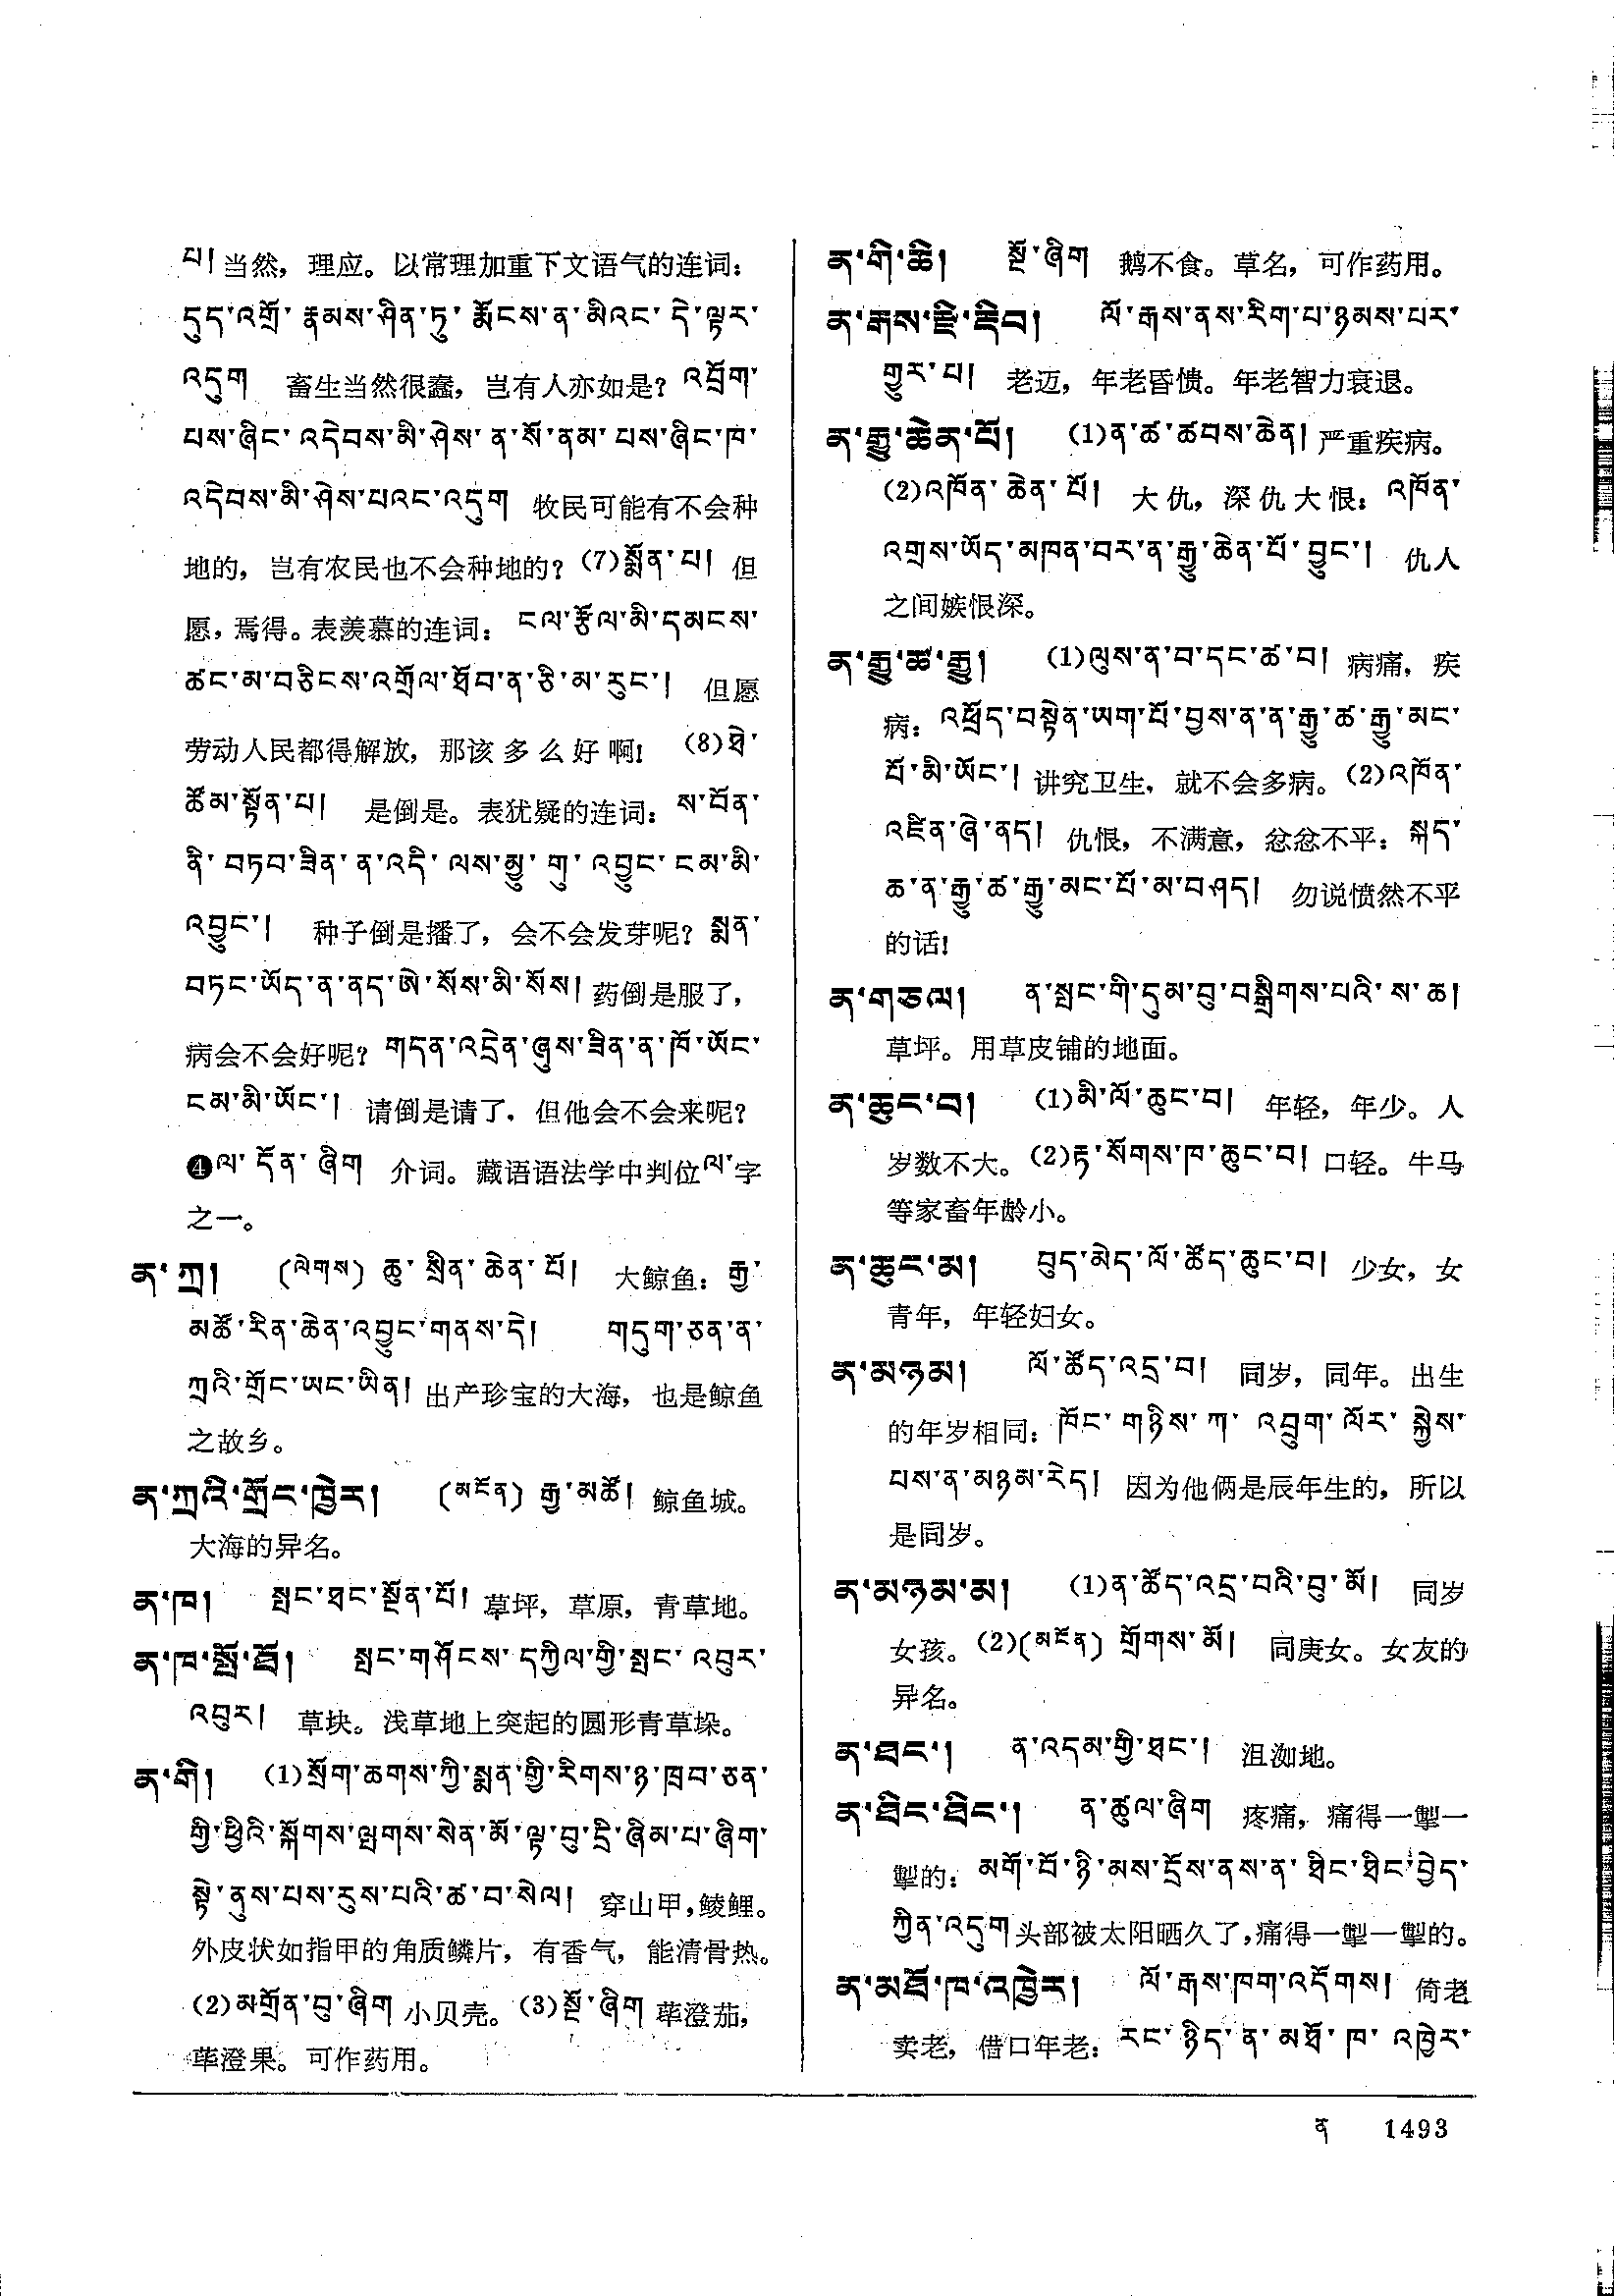 པ། 当然，理应。以常理加重下文语气的连词：
དུད་འགྲོ་རྣམས་ཤིན་ཏུ་རྨོངས་ན་མིའང་དེ་ལྟར་
འདུག 畜生当然很蠢，岂有人亦如是？འབྲོག་
པས་ཞིང་འདེབས་མི་ཤེས་ན་སོ་ནམ་པས་ཞིང་ཁ་
འདེབས་མི་ཤེས་པའང་འདུག 牧民可能有不会种
地的，岂有农民也不会种地的？(7)སྨོན་པ། 但
愿，焉得。表羡慕的连词：ངལ་རྩོལ་མི་དམངས་
ཚང་མ་བཅིངས་འགྲོལ་ཐོབ་ན་ཅི་མ་རུང་། 但愿
劳动人民都得解放，那该多么好啊！ (8)ཐེ་
ཚོམ་སྟོན་པ། 是倒是。表犹疑的连词：ས་བོན་
ནི་བཏབ་ཟིན་ན་འདི་ལས་མྱུ་གུ་འབྱུང་ངམ་མི་
འབྱུང་། 种子倒是播了，会不会发芽呢？སྨན་
བཏང་ཡོད་ན་ནད་ཨེ་སོས་མི་སོས། 药倒是服了，
病会不会好呢？གདན་འདྲེན་ཞུས་ཟིན་ན་ཁོ་ཡོང་
ངམ་མི་ཡོང་། 请倒是请了，但他会不会来呢？
❹ལ་དོན་ཞིག 介词。藏语语法学中判位ལ་字
之一。
ན་ཀྲ། (ལེགས) ཆུ་སྲིན་ཆེན་པོ། 大鲸鱼：རྒྱ་
མཚོ་རིན་ཆེན་འབྱུང་གནས་དེ། གདུག་ཅན་ན་
ཀྲའི་གྲོང་ཡང་ཡིན། 出产珍宝的大海，也是鲸鱼
之故乡。
ན་ཀྲའི་གྲོང་ཁྱེར། (མངོན) རྒྱ་མཚོ། 鲸鱼城。
大海的异名。
ན་ཁ། སྤང་ཐང་སྔོན་པོ། 草坪，草原，青草地。
ན་ཁ་སྤྲོ་ཐོ། སྤང་གཤོངས་དཀྱིལ་གྱི་སྤང་འབུར་
འབུར། 草块。浅草地上突起的圆形青草垛。
ན་གི། (1)སྲོག་ཆགས་ཀྱི་སྨན་གྱི་རིགས་ཉ་ཁྲབ་ཅན་
གྱི་ཕྱིའི་སྐོགས་ལྤགས་སེན་མོ་ལྟ་བུ་དྲི་ཞིམ་པ་ཞིག་
སྟེ་ནུས་པས་རུས་པའི་ཚ་བ་སེལ། 穿山甲，鲮鲤。
外皮状如指甲的角质鳞片，有香气，能清骨热。
(2)མགྲོན་བུ་ཞིག 小贝壳。(3)སྔོ་ཞིག 荜澄茄，
荜澄果。可作药用。
ན་གི་ཆེ། སྔོ་ཞིག 鹅不食。草名，可作药用。
ན་རྒས་རྫི་རྡིབ། ལོ་རྒས་ནས་རིག་པ་ཉམས་པར་
གྱུར་པ། 老迈，年老昏愦。年老智力衰退。
ན་རྒྱུ་ཆེན་པོ། (1)ན་ཚ་ཚབས་ཆེན། 严重疾病。
(2)འཁོན་ཆེན་པོ། 大仇，深仇大恨：འཁོན་
འགྲས་ཡོད་མཁན་བར་ན་རྒྱུ་ཆེན་པོ་བྱུང་། 仇人
之间嫉恨深。
ན་རྒྱུ་ཚ་རྒྱུ། (1)ལུས་ན་བ་དང་ཚ་བ། 病痛，疾
病：འཕྲོད་བསྟེན་ཡག་པོ་བྱས་ན་ན་རྒྱུ་ཚ་རྒྱུ་མང་
པོ་མི་ཡོང་། 讲究卫生，就不会多病。(2)འཁོན་
འཛིན་ཞེ་ནད། 仇恨，不满意，忿忿不平：སྐད་
ཆ་ན་རྒྱུ་ཚ་རྒྱུ་མང་པོ་མ་བཤད། 勿说愤然不平
的话！
ན་གཅལ། ན་སྤང་གི་དུམ་བུ་བསྒྲིགས་པའི་ས་ཆ།
草坪。用草皮铺的地面。
ན་ཆུང་བ། (1)མི་ལོ་ཆུང་བ། 年轻，年少。人
岁数不大。(2)རྟ་སོགས་ཁ་ཆུང་བ། 口轻。牛马
等家畜年龄小。
ན་ཆུང་མ། བུད་མེད་ལོ་ཚོད་ཆུང་བ། 少女，女
青年，年轻妇女。
ན་མཉམ། ལོ་ཚོད་འདྲ་བ། 同岁，同年。出生
的年岁相同：ཁོང་གཉིས་ཀ་འབྲུག་ལོར་སྐྱེས་
པས་ན་མཉམ་རེད། 因为他俩是辰年生的，所以
是同岁。
ན་མཉམ་མ། (1)ན་ཚོད་འདྲ་བའི་བུ་མོ། 同岁
女孩。(2)(མངོན) གྲོགས་མོ། 同庚女。女友的
异名。
ན་ཐང་། ན་འདམ་གྱི་ཐང་། 沮洳地。
ན་ཐིང་ཐིང་། ན་ཚུལ་ཞིག 疼痛，痛得一掣一
掣的：མགོ་བོ་ཉི་མས་དྲོས་ནས་ན་ཐིང་ཐིང་བྱེད་
ཀྱིན་འདུག 头部被太阳晒久了，痛得一掣一掣的。
ན་མཐོ་ཁ་འཁྱེར། ལོ་རྒས་ཁག་འདོགས། 倚老
卖老，借口年老：རང་ཉིད་ན་མཐོ་ཁ་འཁྱེར་
ན 1493